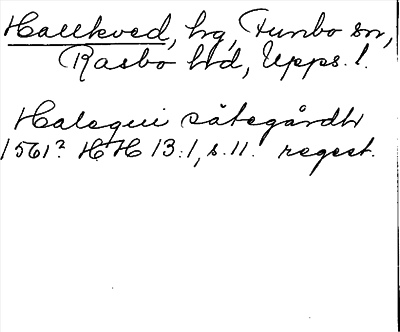 Hallkved, hg, Funbo sn,
Rasbo hd, Upps. l.
Halequi sätegårdh
1561? HH 13:1, s. 11. regest.